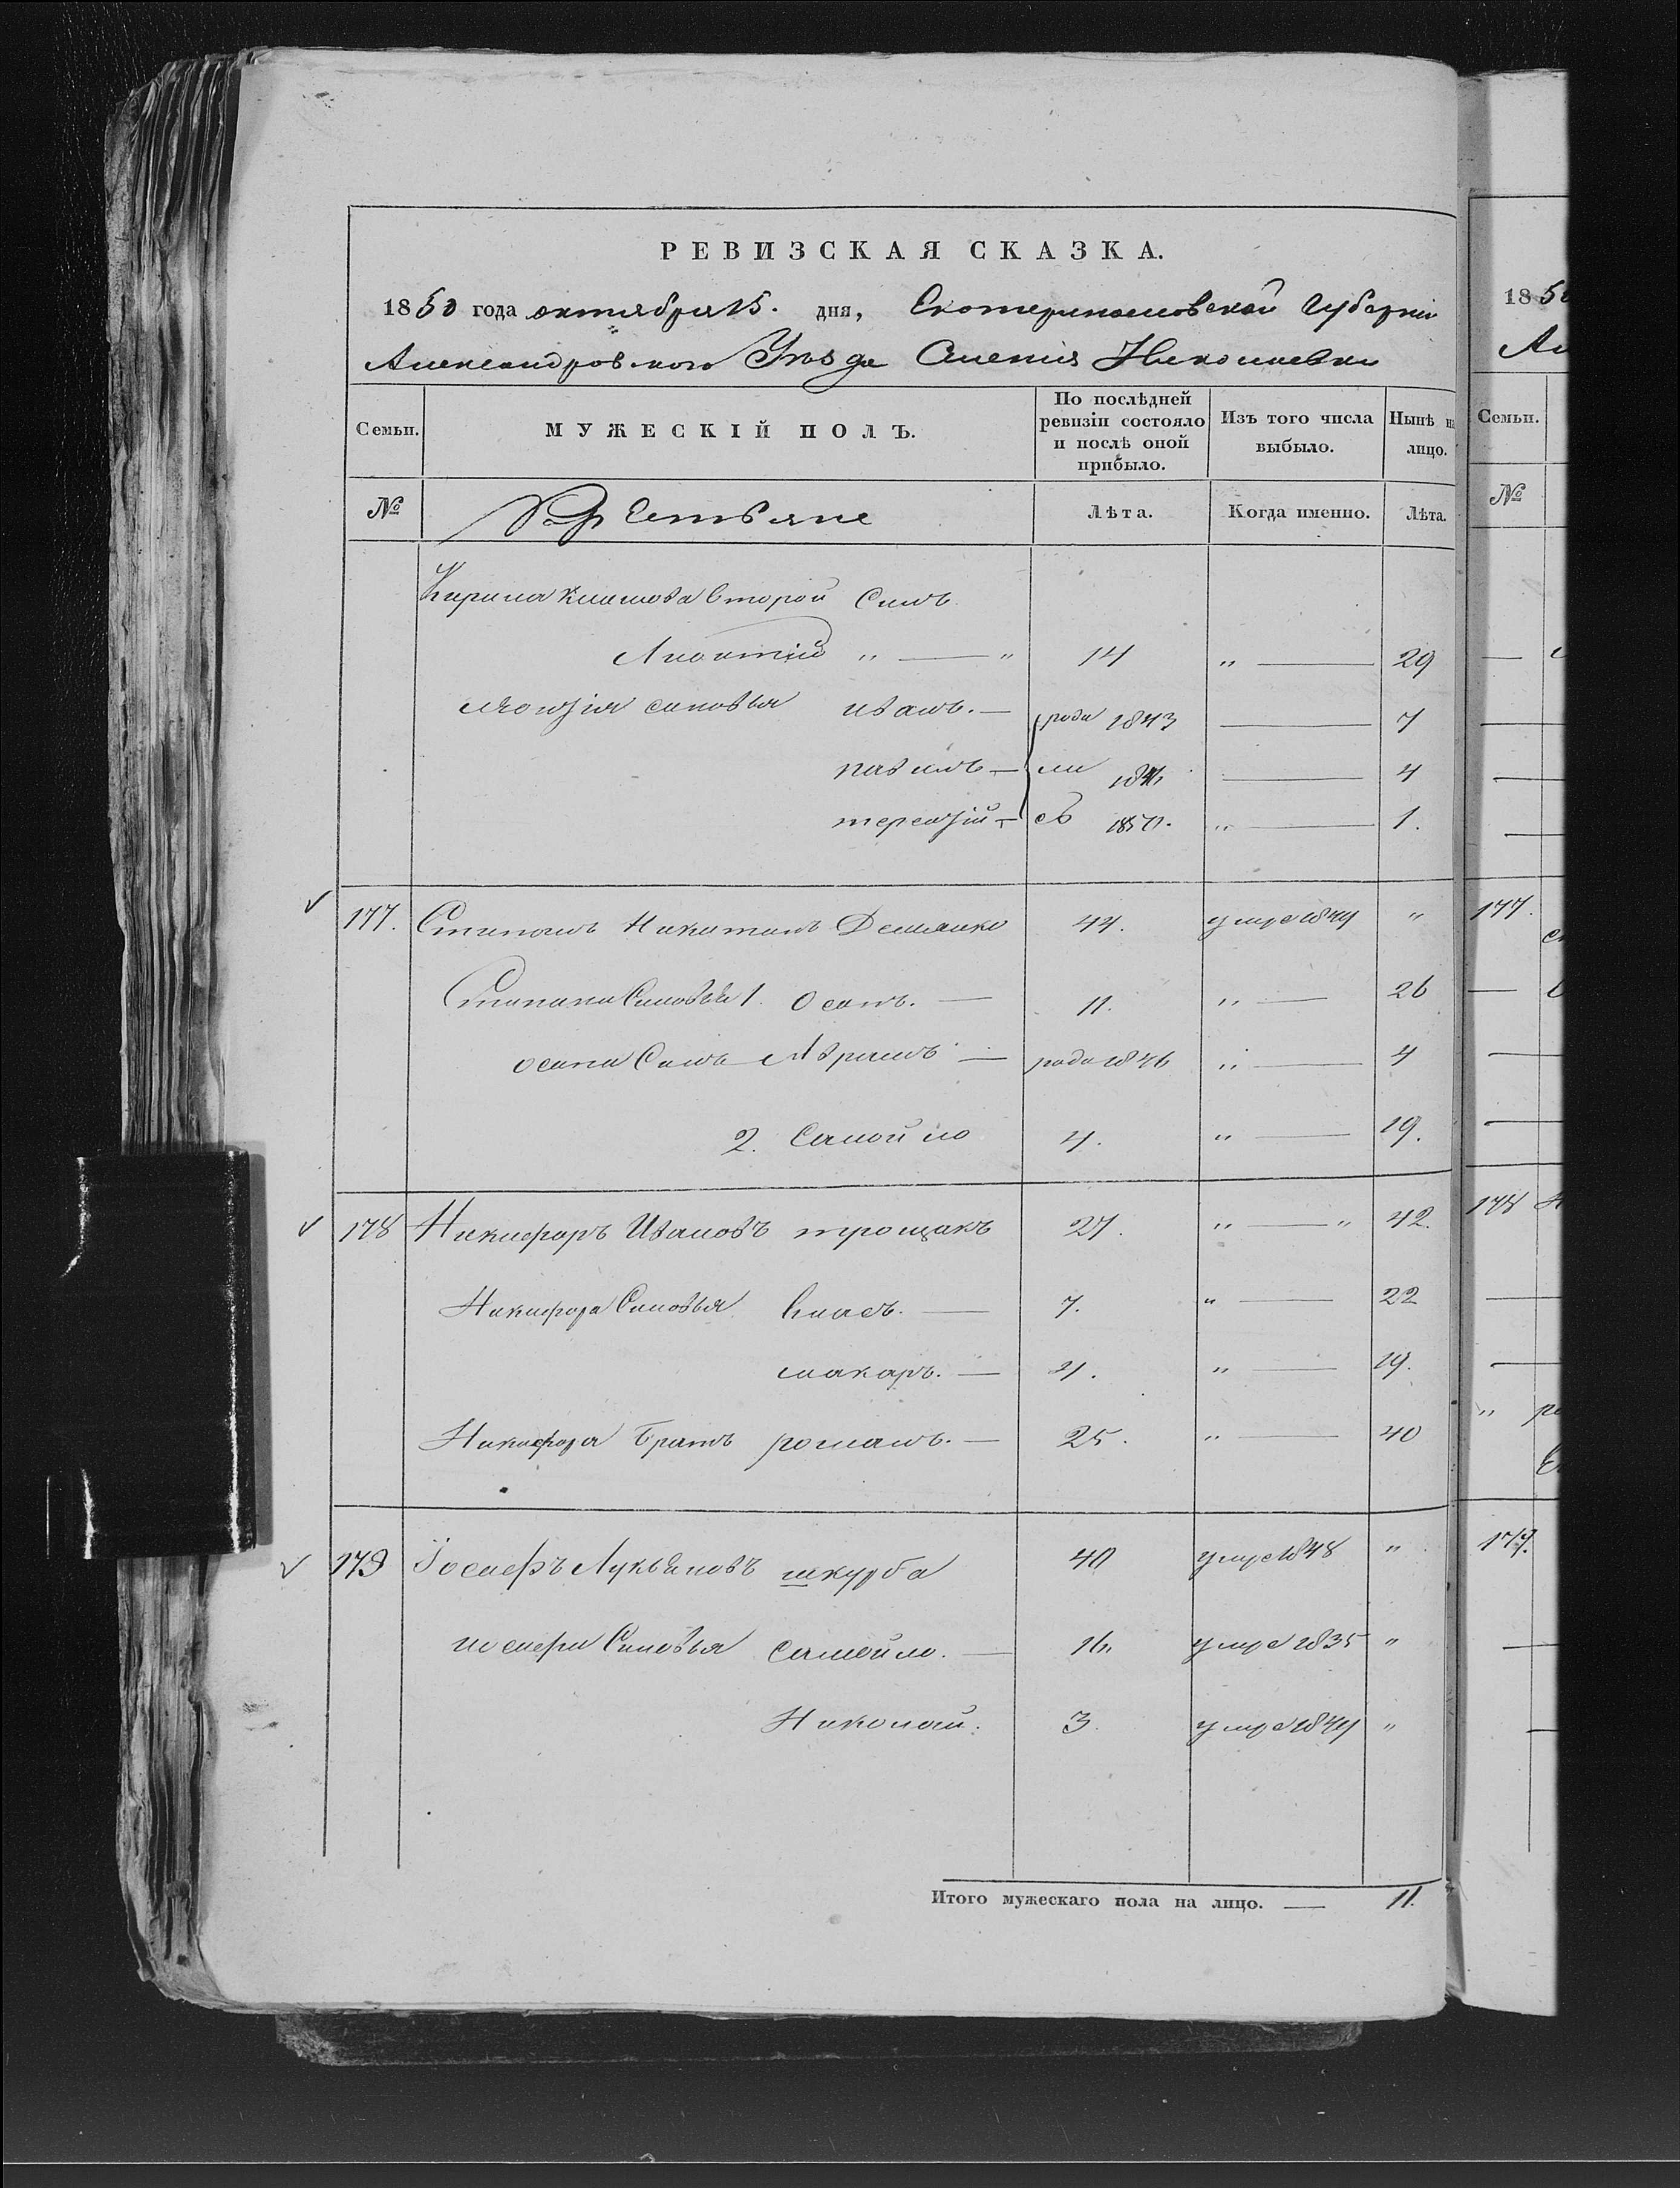 РЕВИЗСКАЯ СКАЗКА.
1850 года октября 15. дня, Екотеринославской Губерніи
Александровского Уезда Сиенія Николаевки
Семьи. МУЖЕСКІЙ ПОЛЪ. По послѣдней ревизіи состояло и послѣ оной прибыло. Изъ того числа выбыло. Нынѣ на лицо.
№ Крестьяне Лѣта. Когда именно. Лѣта.
Кирила Климова второй Синъ
Леонтій „ — „ 14 „ — 29
Леонтія синовья иванъ. — роди 1843 — 7
павилъ — ли 1846 — 4
терентій — съ 1850. „ — 1.
177. Стипанъ Никитинъ Демянко 44. умре 1849 „
Стипана Синовья 1. Осипъ. — 11. „ — 26
осипа Синъ Аврамъ — роди 1846 „ — 4
2. Самойло 4. „ — 19.
178 Никифоръ Ивановъ трощакъ 27. „ — „ 42.
Никифора Синовья Власъ. — 7. „ — 22
макаръ. — 4. „ — 19.
Никифора братъ романъ. — 25. „ — 40
179 Іосифъ Лукьяновъ шкурба 40 умре 1848 „
иосифа Синовья Самойло. — 16. умре 1835 „
Николай. 3. умре 1849 „
Итого мужескаго пола на лицо. — 11.
1850
Ал
Семьи.
№
177.
178 Н
„ ро
179.